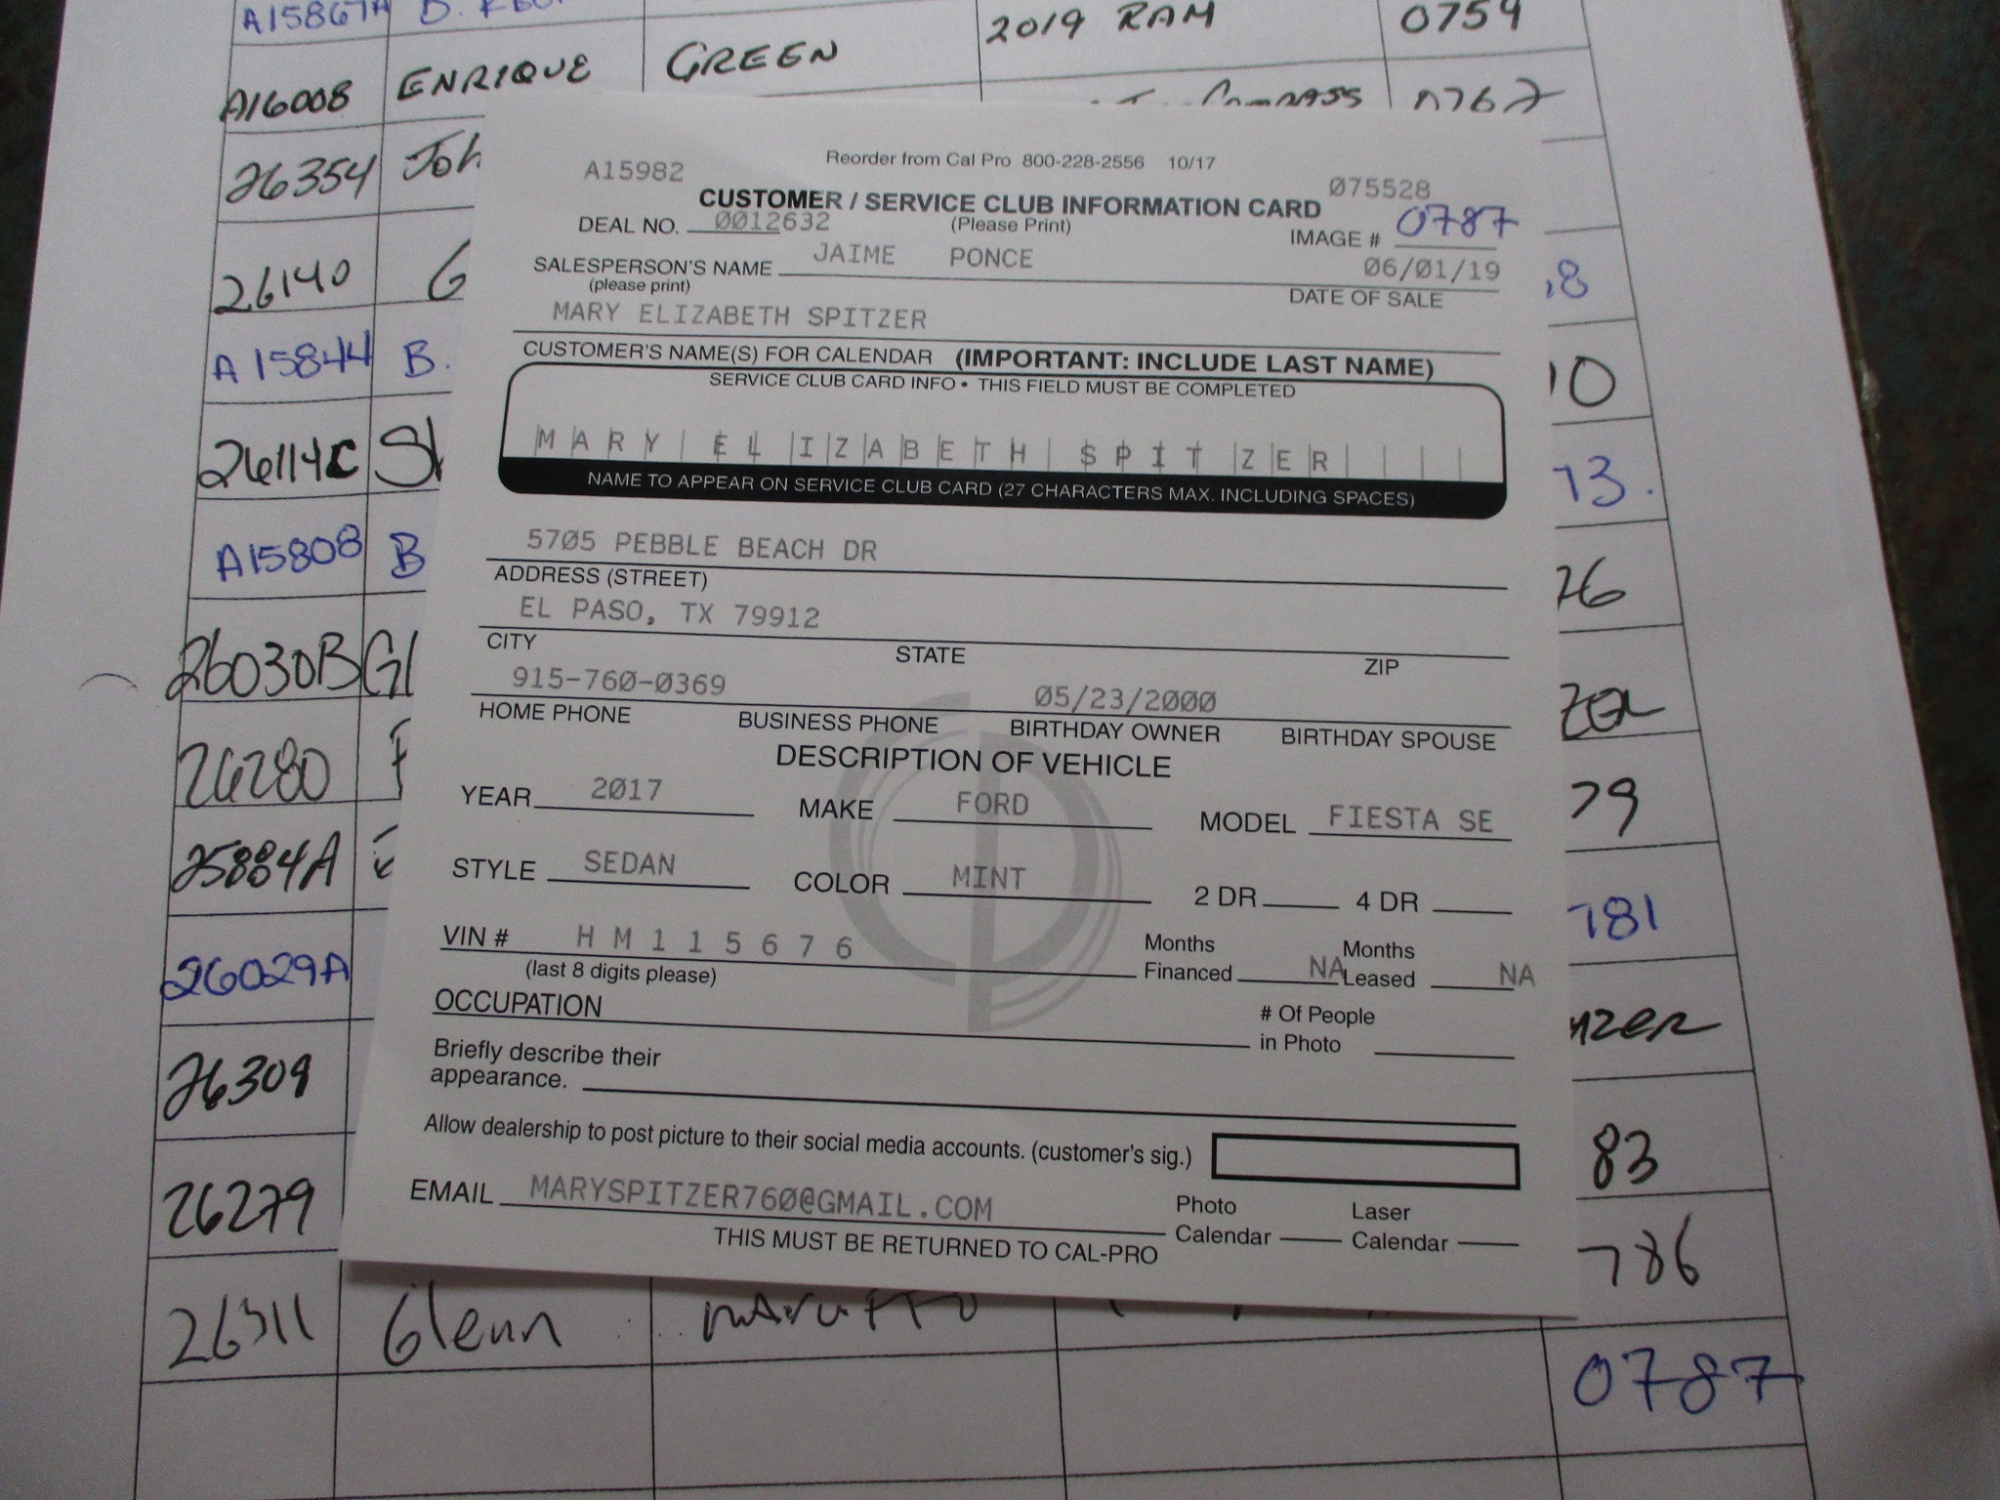 A15867A
2019 RAM 0754
A16008 ENRIQUE GREEN
26354
26140
A15844 B.
26114C
A15808 B
26030B
26280
25884A
26029A
26309
26279
26311 Glenn
A15982
Reorder from Cal Pro 800-228-2556 10/17
075528
CUSTOMER / SERVICE CLUB INFORMATION CARD
DEAL NO. 0012632 (Please Print) IMAGE # 0787
SALESPERSON'S NAME JAIME PONCE 06/01/19
(please print) DATE OF SALE
MARY ELIZABETH SPITZER
CUSTOMER'S NAME(S) FOR CALENDAR (IMPORTANT: INCLUDE LAST NAME)
SERVICE CLUB CARD INFO • THIS FIELD MUST BE COMPLETED
MARY ELIZABETH SPITZER
NAME TO APPEAR ON SERVICE CLUB CARD (27 CHARACTERS MAX. INCLUDING SPACES)
5705 PEBBLE BEACH DR
ADDRESS (STREET)
EL PASO, TX 79912
CITY STATE ZIP
915-760-0369 05/23/2000
HOME PHONE BUSINESS PHONE BIRTHDAY OWNER BIRTHDAY SPOUSE
DESCRIPTION OF VEHICLE
YEAR 2017 MAKE FORD MODEL FIESTA SE
STYLE SEDAN COLOR MINT 2 DR 4 DR
VIN # H M 1 1 5 6 7 6 Months Financed NA Months Leased NA
(last 8 digits please)
OCCUPATION # Of People in Photo
Briefly describe their
appearance.
Allow dealership to post picture to their social media accounts. (customer's sig.)
EMAIL MARYSPITZER760@GMAIL.COM Photo Calendar Laser Calendar
THIS MUST BE RETURNED TO CAL-PRO
10
13.
26
79
781
83
786
0787